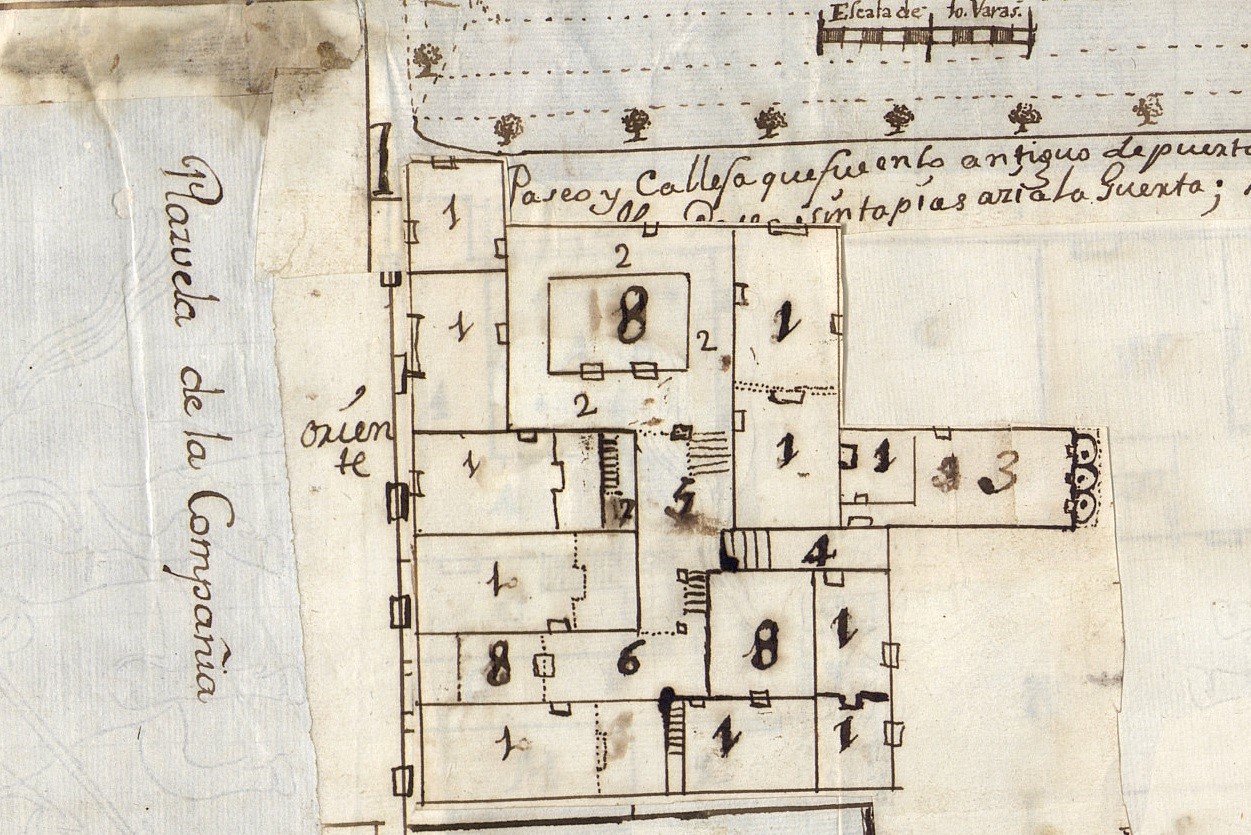 Escala de 10. Varas.
Paseo y Callesa que fue en lo antiguo de puerta
sin tapias azia la Guerta;
Plazuela de la Compañia
orien
te
1
2
8
1
1
2
2
1
1
1
1
3
2
5
4
1
8
1
8
6
1
1
1